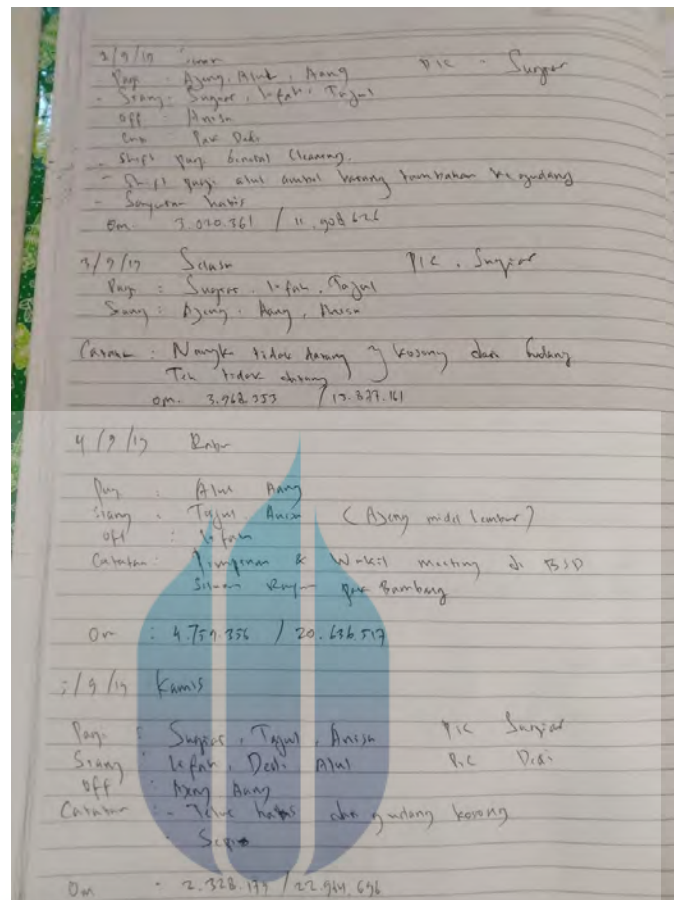 2/9/19 Senin
Pagi : Ajeng, Alul, Aang PIC - Sugiar
- Siang : Sugiar, Lefah, Tajul
OFF : Anisa
Cuti Pak Dedi
- Shift pagi General Cleaning.
- Shift pagi alul ambil barang tambahan ke gudang
- Sayuran habis
Om. 3.070.361 / 11.908.626
3/9/19 Selasa PIC . Sugiar
Pagi : Sugiar, Lefah, Tajul
Siang : Ajeng, Aang, Anisa
Catatan : Nangk tidak datang } kosong dari Gudang
Teh tidak datang
om. 3.968.553 / 15.877.161
4/9/19 Rabu
Pagi : Alul Aang
Siang : Tajul, Anisa (Ajeng midel lembur)
OFF : Lefah
Catatan : Pimpinan & Wakil meeting di BSD
pak Bambang
Om : 4.759.356 / 20.636.517
5/9/19 Kamis
Pagi : Sugiar, Tajul, Anisa PIC Sugiar
Siang : Lefah, Dedi, Alul PIC Dedi
OFF : Ajeng Aang
Catatan : - habis dan gudang kosong
- Sepi
Om : 2.328.179 / 22.964.696